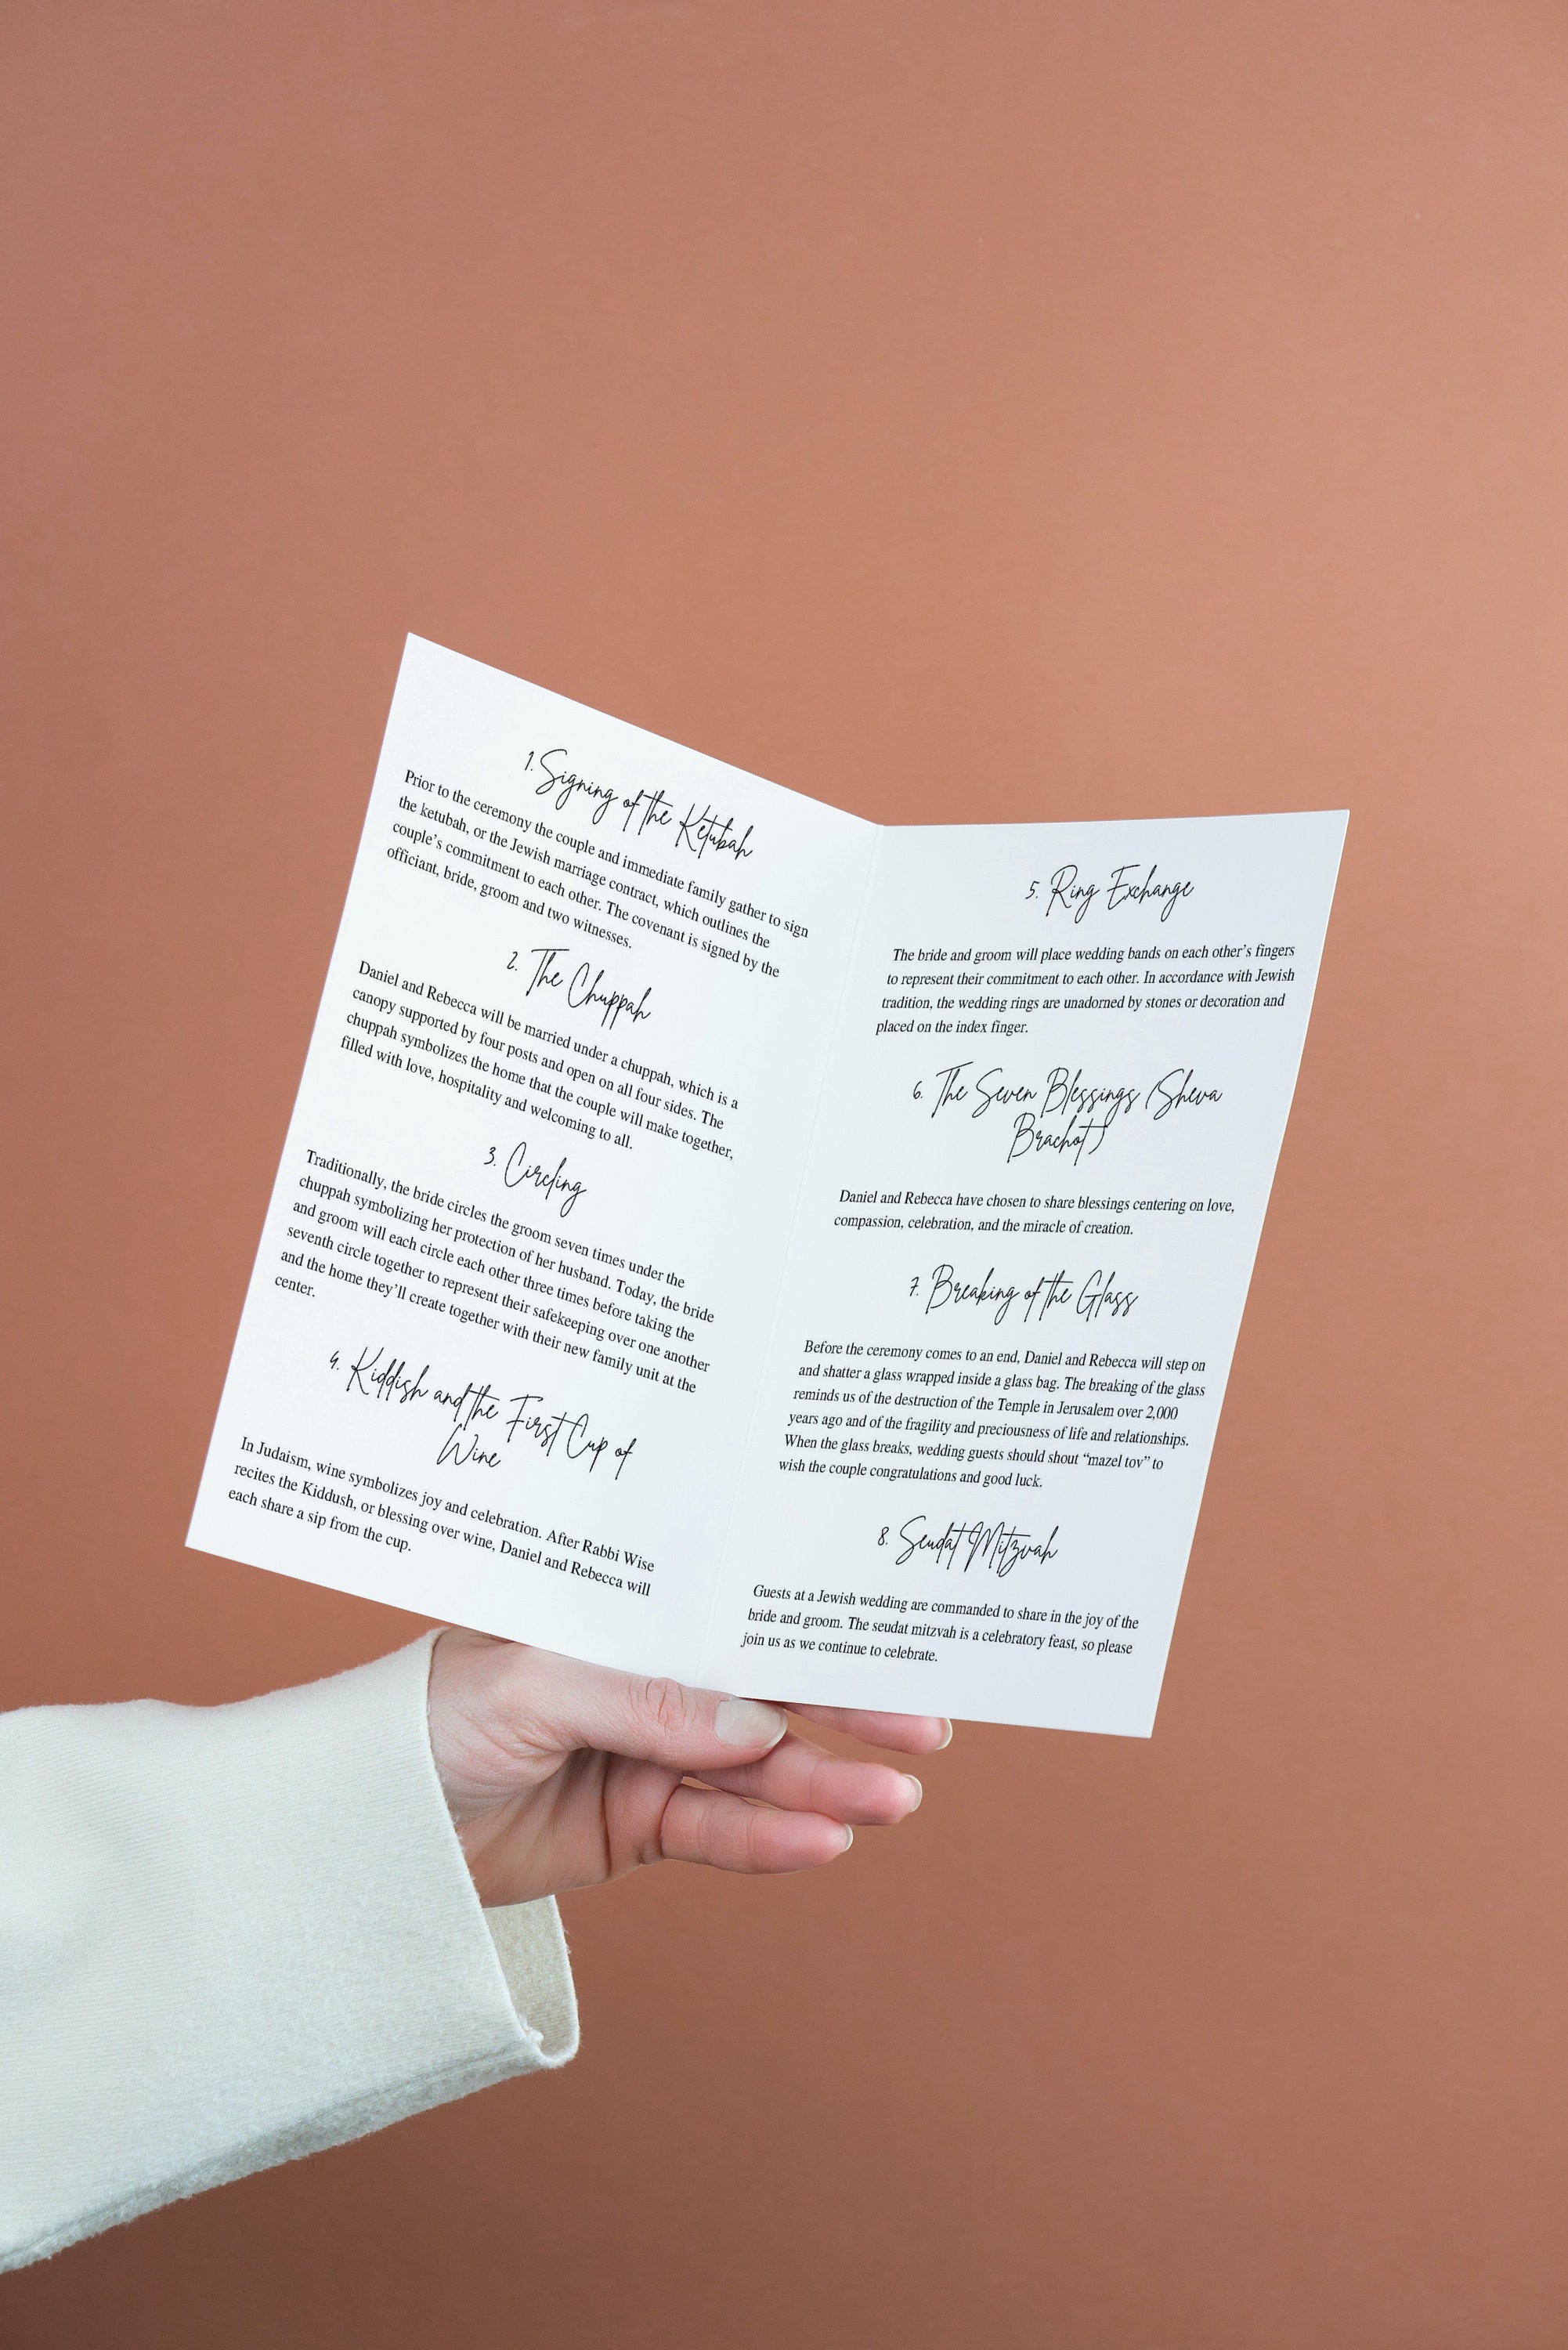 1. Signing of the Ketubah
Prior to the ceremony the couple and immediate family gather to sign
the ketubah, or the Jewish marriage contract, which outlines the
couple's commitment to each other. The covenant is signed by the
officiant, bride, groom and two witnesses.
2. The Chuppah
Daniel and Rebecca will be married under a chuppah, which is a
canopy supported by four posts and open on all four sides. The
chuppah symbolizes the home that the couple will make together,
filled with love, hospitality and welcoming to all.
3. Circling
Traditionally, the bride circles the groom seven times under the
chuppah symbolizing her protection of her husband. Today, the bride
and groom will each circle each other three times before taking the
seventh circle together to represent their safekeeping over one another
and the home they'll create together with their new family unit at the
center.
4. Kiddish and the First Cup of
Wine
In Judaism, wine symbolizes joy and celebration. After Rabbi Wise
recites the Kiddush, or blessing over wine, Daniel and Rebecca will
each share a sip from the cup.
5. Ring Exchange
The bride and groom will place wedding bands on each other's fingers
to represent their commitment to each other. In accordance with Jewish
tradition, the wedding rings are unadorned by stones or decoration and
placed on the index finger.
6. The Seven Blessings (Sheva
Brachot)
Daniel and Rebecca have chosen to share blessings centering on love,
compassion, celebration, and the miracle of creation.
7. Breaking of the Glass
Before the ceremony comes to an end, Daniel and Rebecca will step on
and shatter a glass wrapped inside a glass bag. The breaking of the glass
reminds us of the destruction of the Temple in Jerusalem over 2,000
years ago and of the fragility and preciousness of life and relationships.
When the glass breaks, wedding guests should shout "mazel tov" to
wish the couple congratulations and good luck.
8. Seudat Mitzvah
Guests at a Jewish wedding are commanded to share in the joy of the
bride and groom. The seudat mitzvah is a celebratory feast, so please
join us as we continue to celebrate.